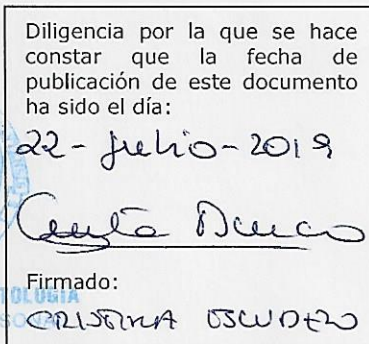 Diligencia por la que se hace
constar que la fecha de
publicación de este documento
ha sido el día:
22 - Julio - 2019
Firmado:
CRISTINA ESCUDERO